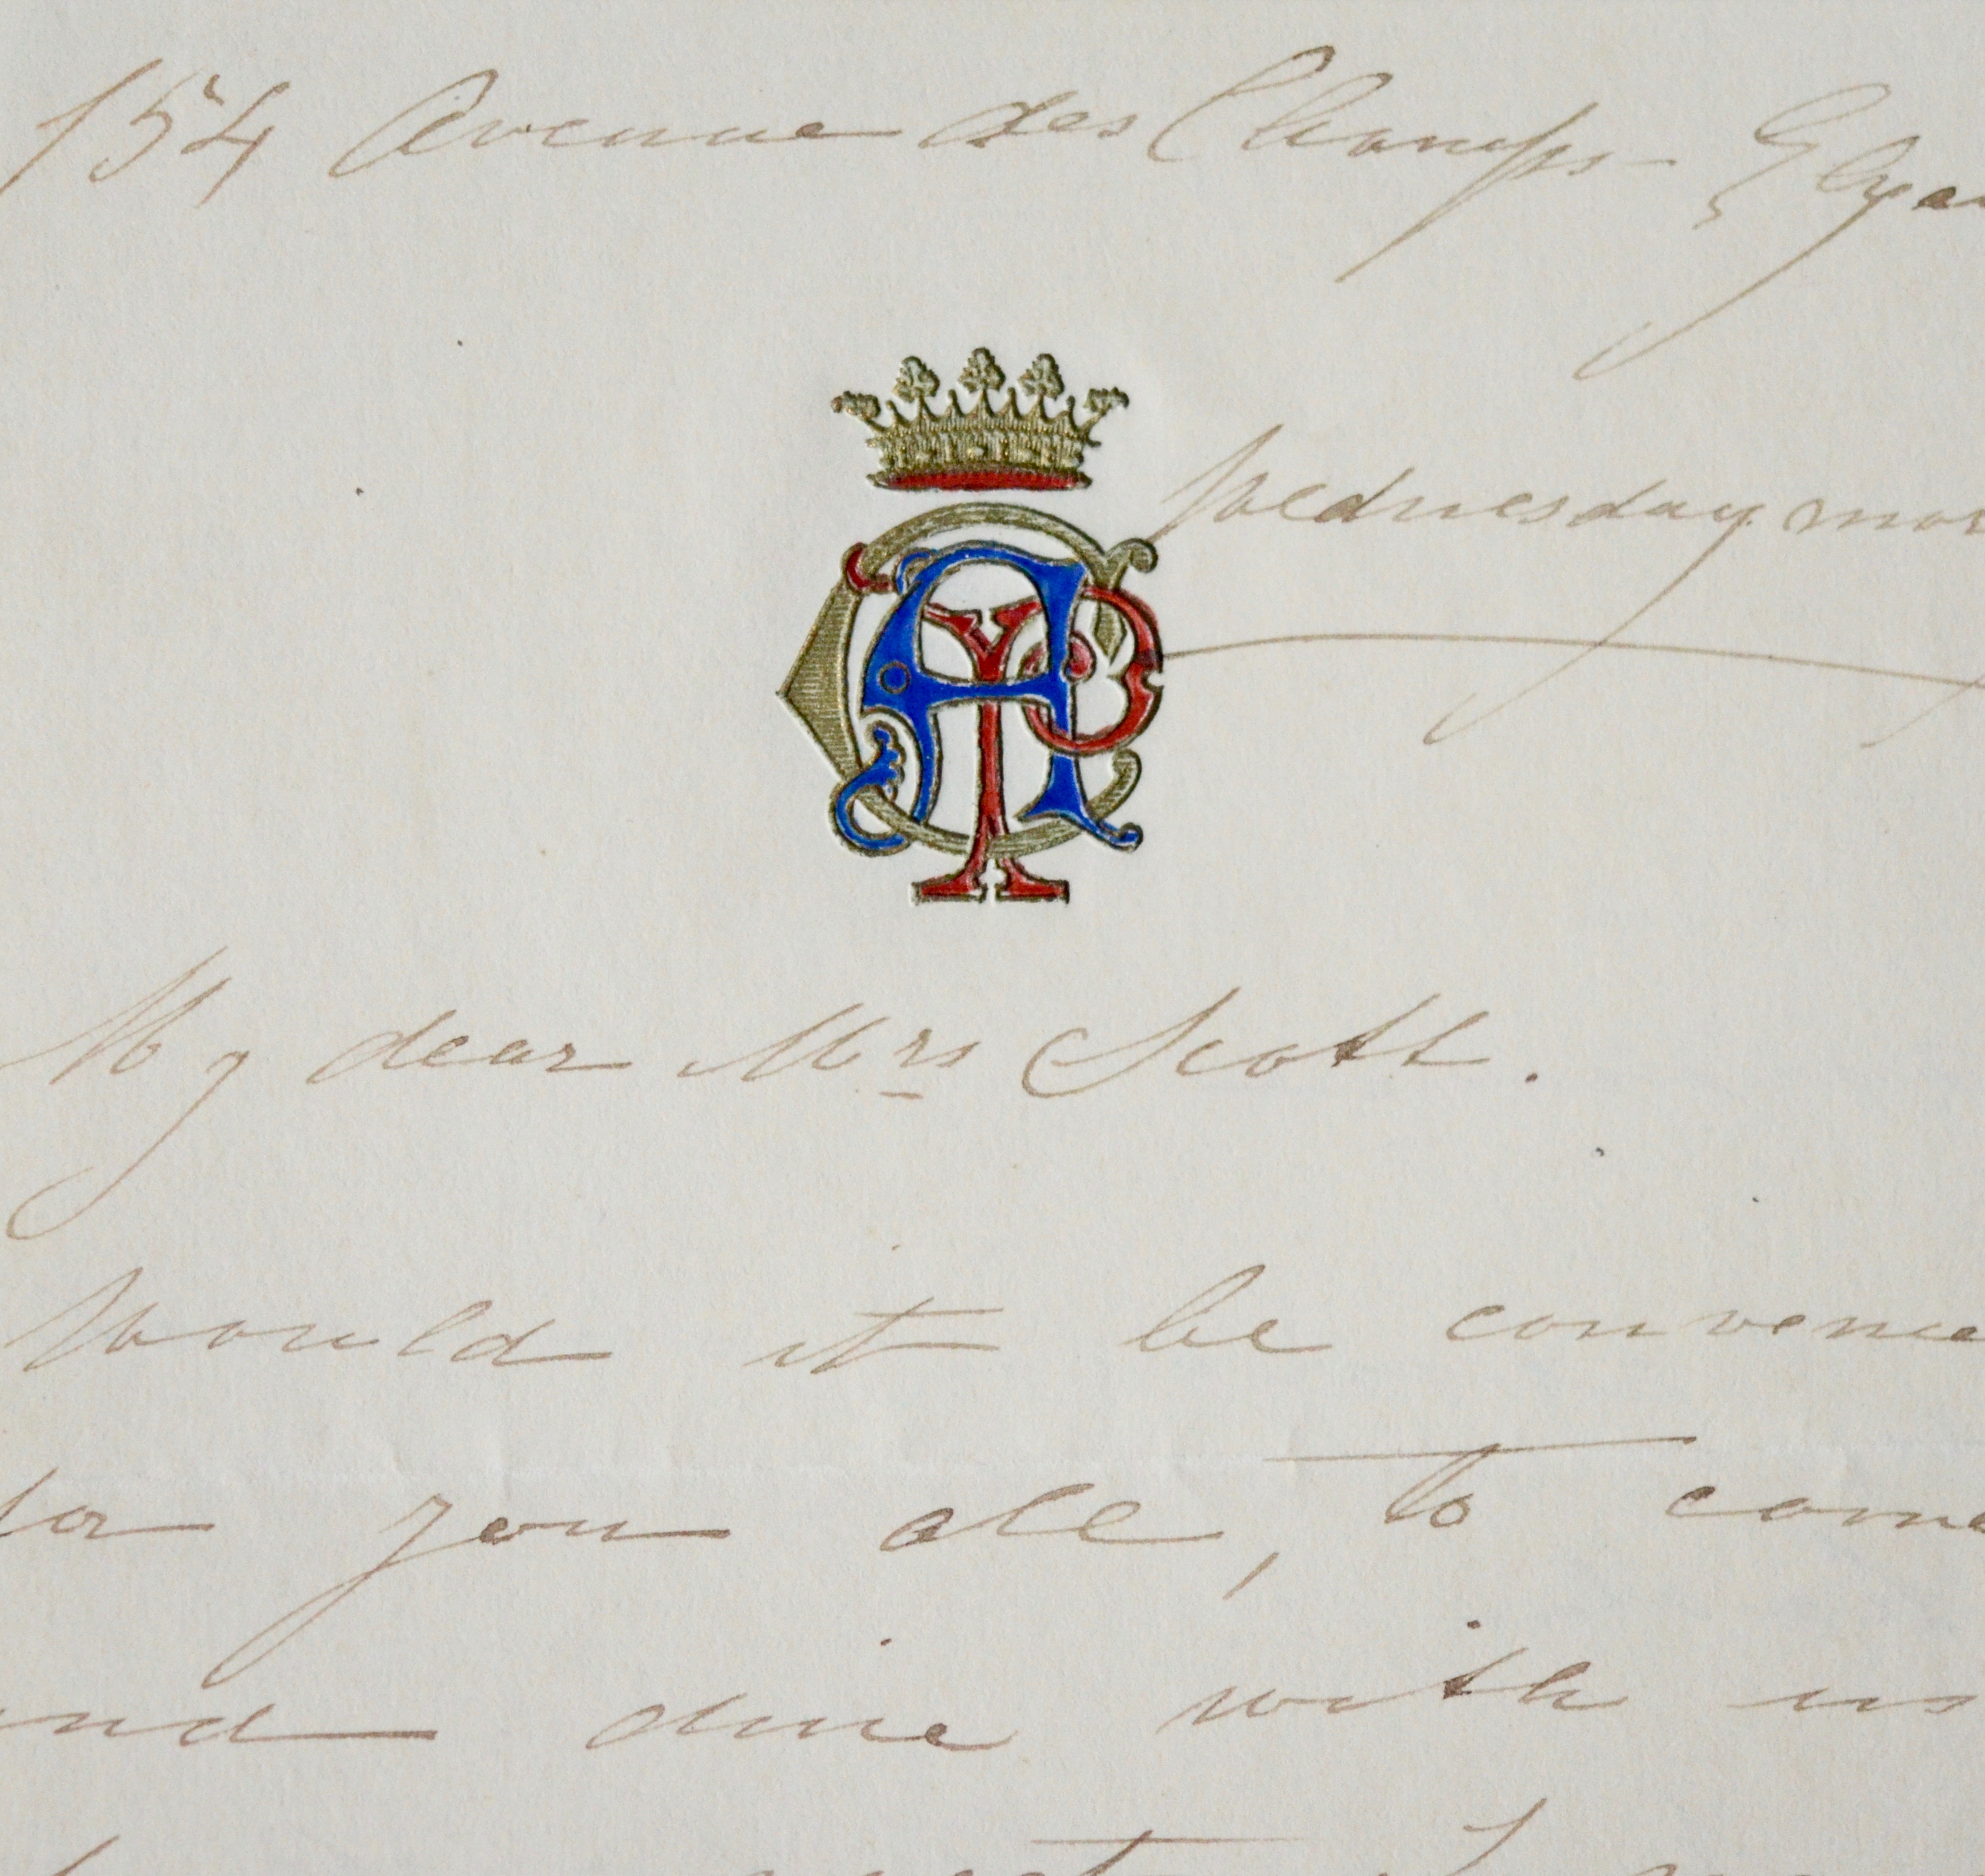 154 Avenue des Champs-Elysé
Wednesday mor
My dear Mrs Scott.
Would it be convenie
for you all, to come
and dine with us